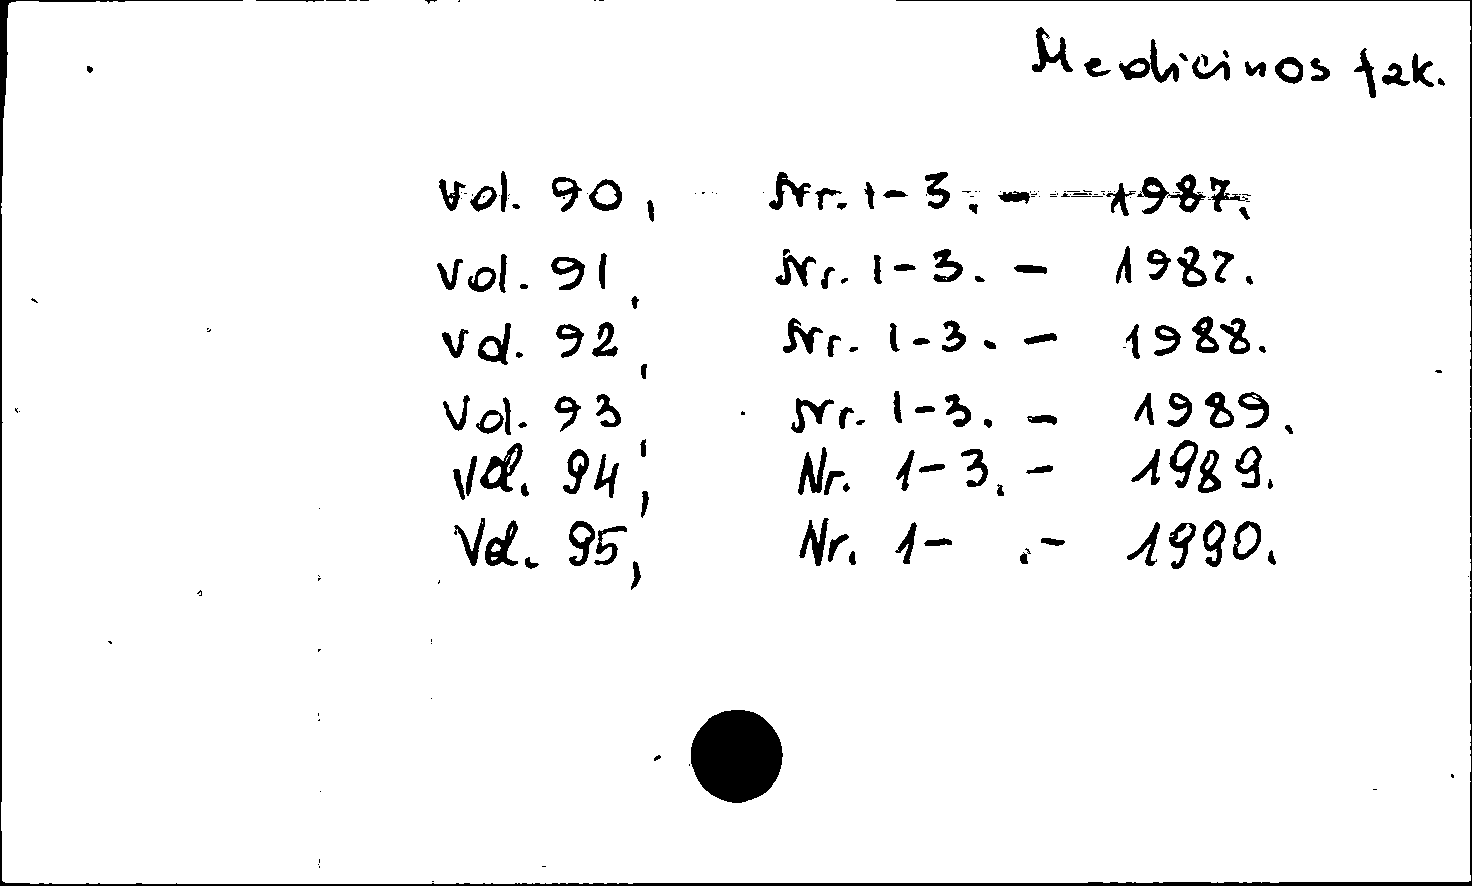 Medicinos fak.
Vol. 90, Nr. 1-3. - 1987.
Vol. 91, Nr. 1-3. - 1987.
Vol. 92, Nr. 1-3. - 1988.
Vol. 93, Nr. 1-3. - 1989.
Vol. 94, Nr. 1-3. - 1989.
Vol. 95, Nr. 1- .- 1990.